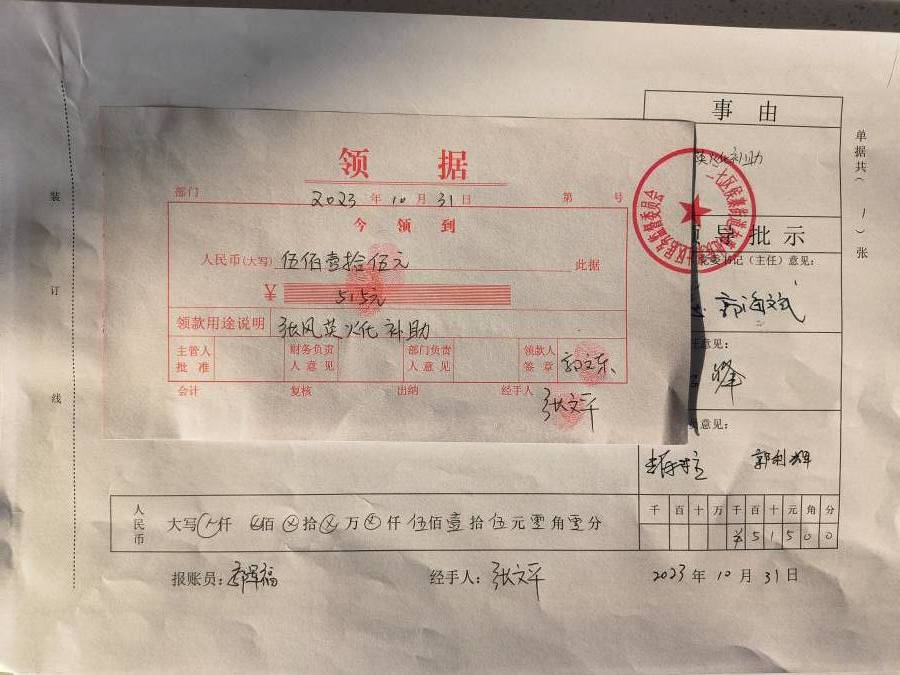 事由
单据共(1)张
火化补助
领据
部门 2023年10月31日 第 号
今领到
人民币(大写)伍佰壹拾伍元 此据
¥ 515元
领款用途说明 张风英火化补助
主管人批准 财务负责人意见 部门负责人意见 领款人签章 郭文东
会计 复核 出纳 经手人 张文平
导批示
书记(主任)意见:
意见:
意见:
装订线
人民币 大写 仟 佰 拾 万 仟 伍佰壹拾伍元零角零分
千百十万千百十元角分
¥51500
报账员: 经手人:张文平 2023年10月31日